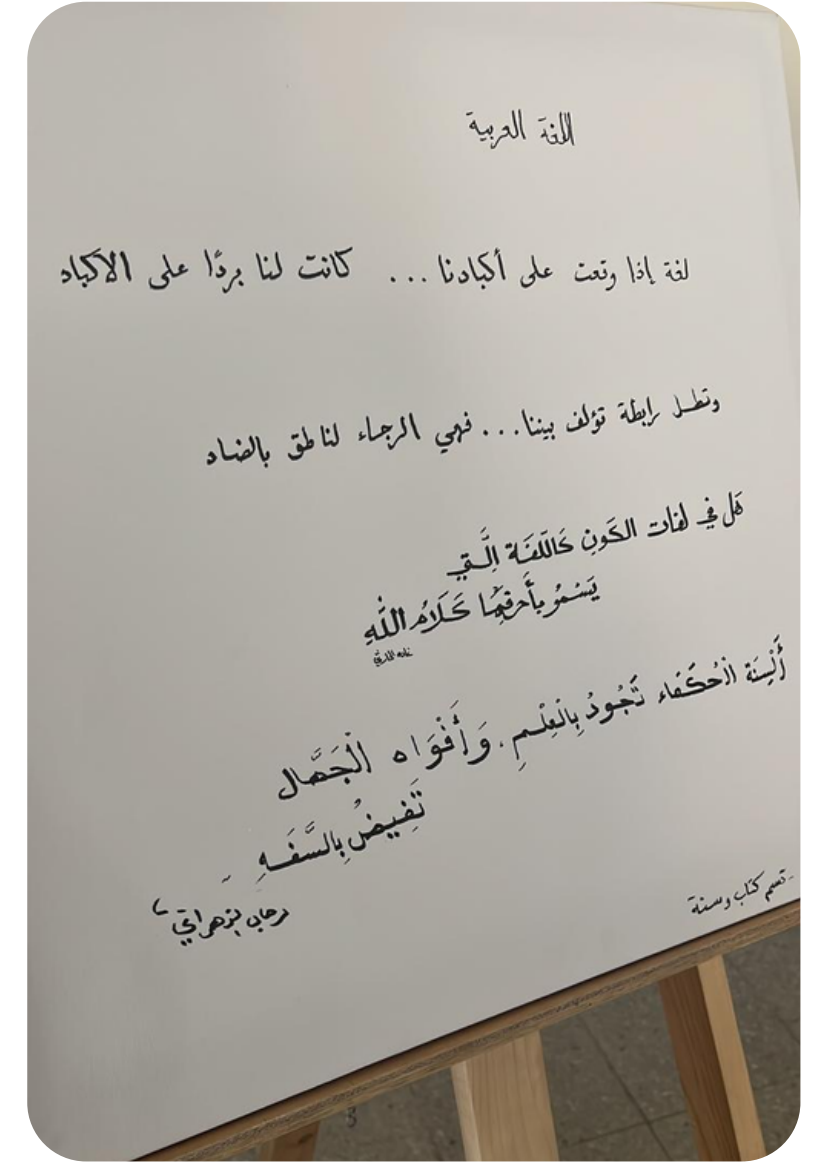 اللغة العربية
لغة إذا وقعت على أكبادنا ... كانت لنا بردًا على الاكباد
وتظل رابطة تؤلف بيننا... فهي الرجاء لناطق بالضاد
هَل في لغات الكَونِ كَاللّغَة الَّتي
يَسْمُو بأَحرفِهَا كَلَامُ اللَّهِ
أَلْسِنَة الْحُكَمَاء تَجُودُ بِالْعِلْمِ، وَأَفْوَاه الْجَهَّال
تَفِيضُ بِالسَّفَهِ
الزهراني
- قسم كتاب وسنة